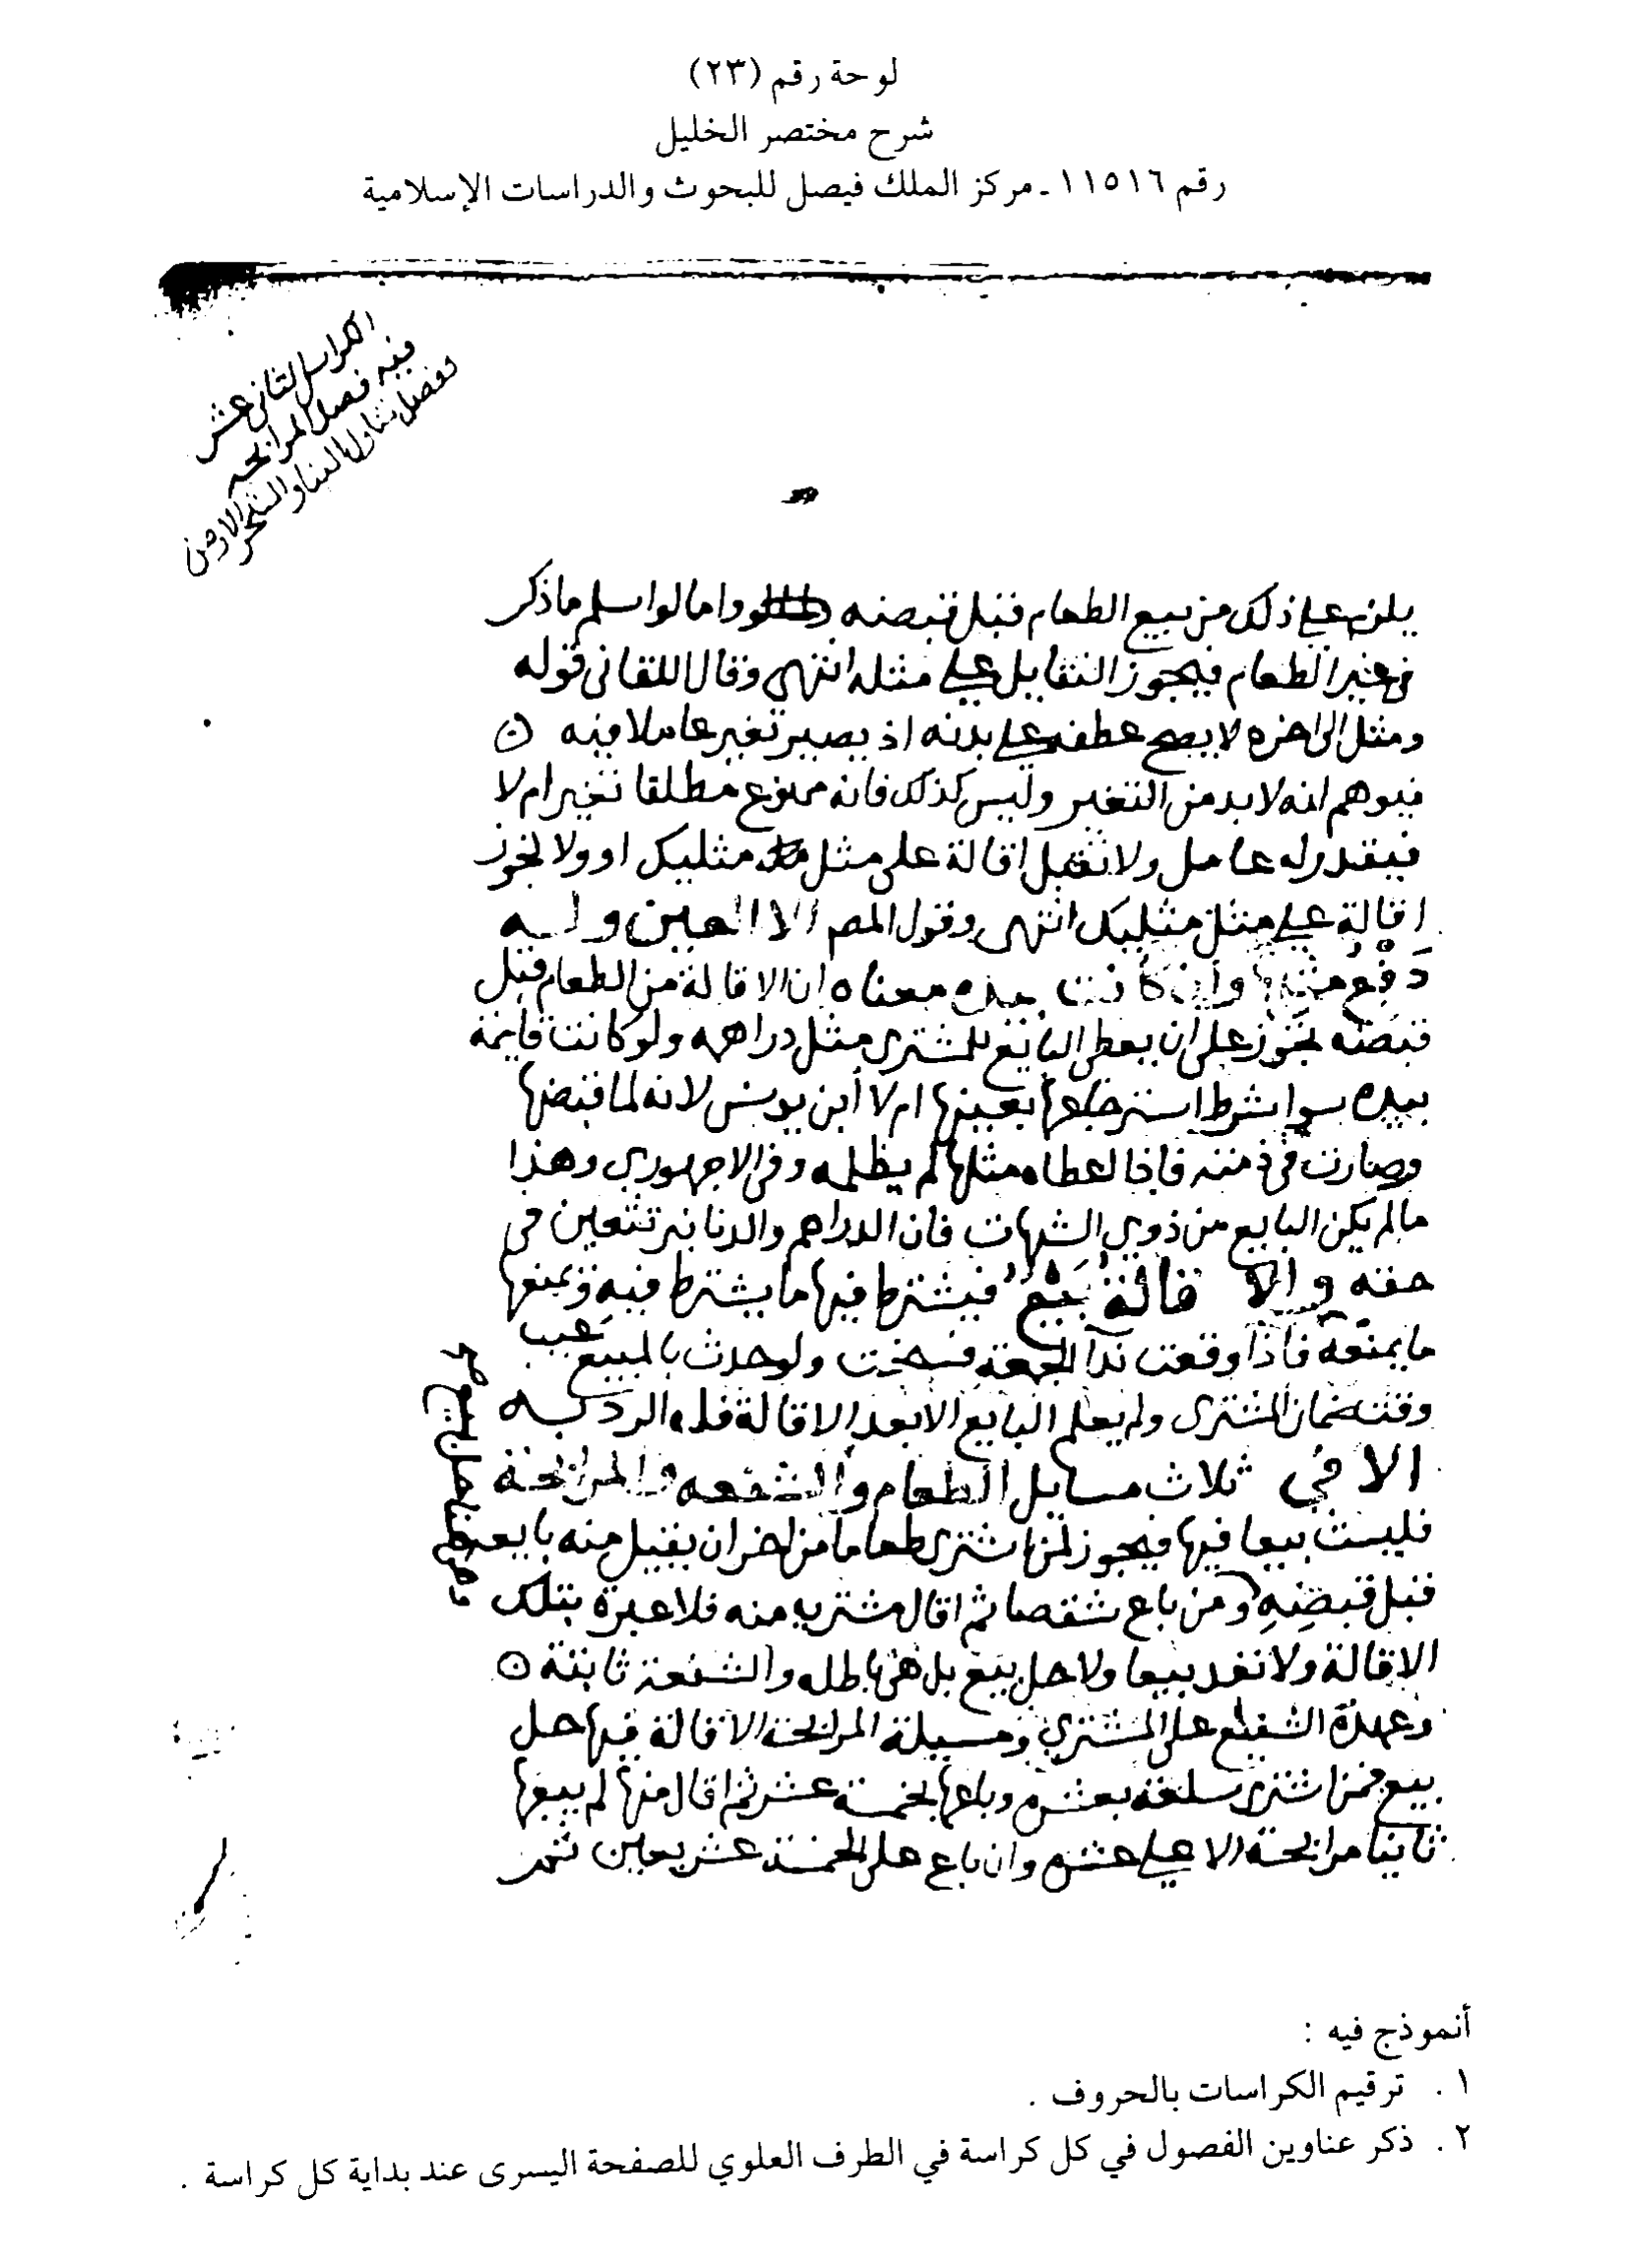 لوحة رقم (٢٣)
شرح مختصر الخليل
رقم ١١٥١٦ ـ مركز الملك فيصل للبحوث والدراسات الإسلامية
الكراس الثاني عشر
فيه فصل المرابحه
وفصل تناول البنا والشجر الارض
يلزم على ذلك من بيع الطعام قبل قبضه واما لو اسلم ما ذكر
فى غير الطعام فيجوز التقايل على مثله انتهى وقال اللقانى قوله
ومثل الى اخره لا يصح عطفه على بدنه اذ يصير تغير عاملا فيه
فيوهم انه لا بد من التغير وليس كذلك فانه ممنوع مطلقا تغير ام لا
فيقدر له عامل ولا تقبل اقالة على مثل مثليك او ولا تجوز
اقالة على مثل مثليك انتهى وقول المصم الا العين وله
دَفْعُ مثلها وإن كانت بيده معناه ان الاقالة من الطعام قبل
قبضه تجوز على ان يعطى البائع للمشترى مثل دراهمه ولو كانت قايمة
بيده سوا شرط استرجاعها بعينها ام لا ابن يونس لانه لما قبضها
وصارت فى ذمته فاذا اعطاه مثلها لم يظلمه وفى الاجهوري وهذا
ما لم يكن البايع من ذوي الشبهات فان الدراهم والدنانير تتعين فى
حقه والاقالة بَيْعٌ فيشترط فيها ما يشترط فيه ويمنعها
ما يمنعه فاذا وقعت ندا الجمعة فسخت ولو حدث بالمبيع عيب
وقت ضمان المشترى ولم يعلم البايع الا بعد الاقالة فله الرد به
الا في ثلاث مسايل الطعام والشفعه والمرابحة
فليست بيعا فيها فيجوز لمن اشترى طعاما من اخر ان يقيل منه بايعه
قبل قبضِهِ ومن باع شقصا ثم اقال مشتريه منه فلا عبرة بتلك
الاقالة ولا تعد بيعا ولا حل بيع بل هى باطله والشفعة ثابتة
وعهدة الشفيع على المشتري ومسيلة المرابحة الاقالة فيها حل
بيع فمن اشترى سلعة بعشرة وباعها بخمسة عشر ثم اقال منها لم يبعها
ثانيا مرابحة الا على عشرة وان باع على الخمسة عشر يعين
أنموذج فيه :
١ . ترقيم الكراسات بالحروف .
٢ . ذكر عناوين الفصول في كل كراسة في الطرف العلوي للصفحة اليسرى عند بداية كل كراسة .